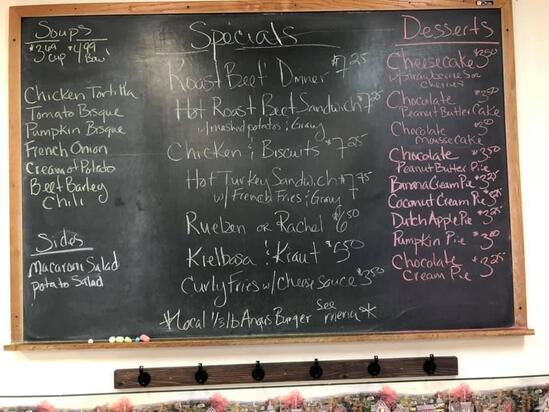 Soups
$3.49 $4.99
cup Bowl
Chicken Tortilla
Tomato Bisque
Pumpkin Bisque
French Onion
Cream of Potato
Beef Barley
Chili
Sides
Macaroni Salad
Potato Salad
Specials
Roast Beef Dinner $7.25
Hot Roast Beef Sandwich $7.25
w/ mashed potatos & Gravy
Chicken & Biscuits $7.25
Hot Turkey Sandwich $7.75
w/ French Fries & Gravy
Rueben or Rachel $6.50
Kielbasa & Kraut $5.50
Curly Fries w/ Cheese Sauce $3.50
*Local 1/3 lb Angus Burger see menu*
Desserts
Cheesecake $3.50
w/ strawberries or
cherries
Chocolate
Peanut Butter Cake
Chocolate
mousse cake
Chocolate $3.50
Peanut Butter Pie
Banana Cream Pie $3.25
Coconut Cream Pie $3.25
Dutch Apple Pie $3.25
Pumpkin Pie $3.00
Chocolate $3.25
Cream Pie